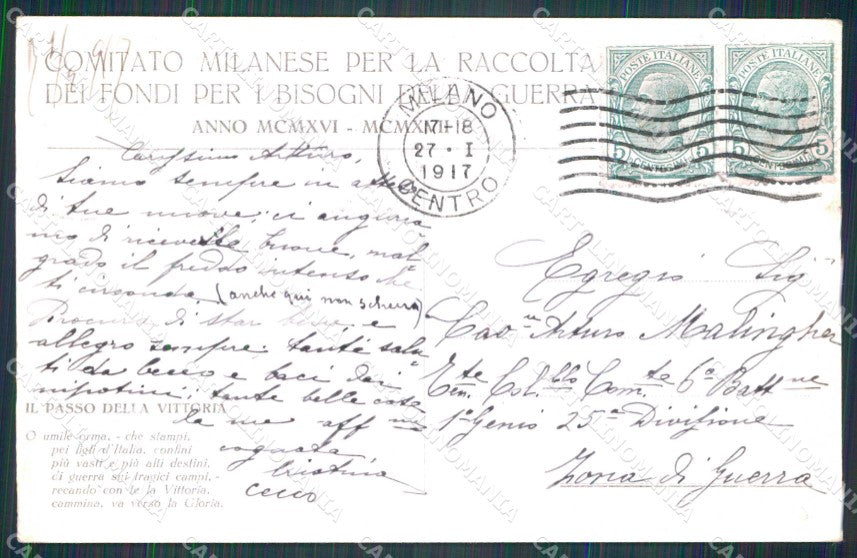 COMITATO MILANESE PER LA RACCOLTA
DEI FONDI PER I BISOGNI DELLA GUERRA
ANNO MCMXVI - MCMXVII
MILANO
17-18
27 · I
1917
CENTRO
POSTE ITALIANE
POSTE ITALIANE
5 CENTESIMI 5
5 CENTESIMI 5
Carissimo Arturo,
Siamo sempre in attesa
di tue nuove: ci auguria
mo di riceverle buone, mal
grado il freddo intenso che
ti circonda. (anche qui non scherza)
Procura di star bene e
allegro sempre: tanti salu
ti da Cecco e baci dai
nipotini; tante belle cose
da me aff
cognata
Cristina
Cecco
Egregio Sig
Cav Arturo Malingher
Ten. Col. Com. 6ª Batt
1º Genio 25ª Divisione
Zona di Guerra
IL PASSO DELLA VITTORIA
O umile orma, - che stampi,
pei figli d'Italia, confini
più vasti e più alti destini,
di guerra sui tragici campi, -
recando con te la Vittoria,
cammina, va verso la Gloria.
CARTOLINOMANIA